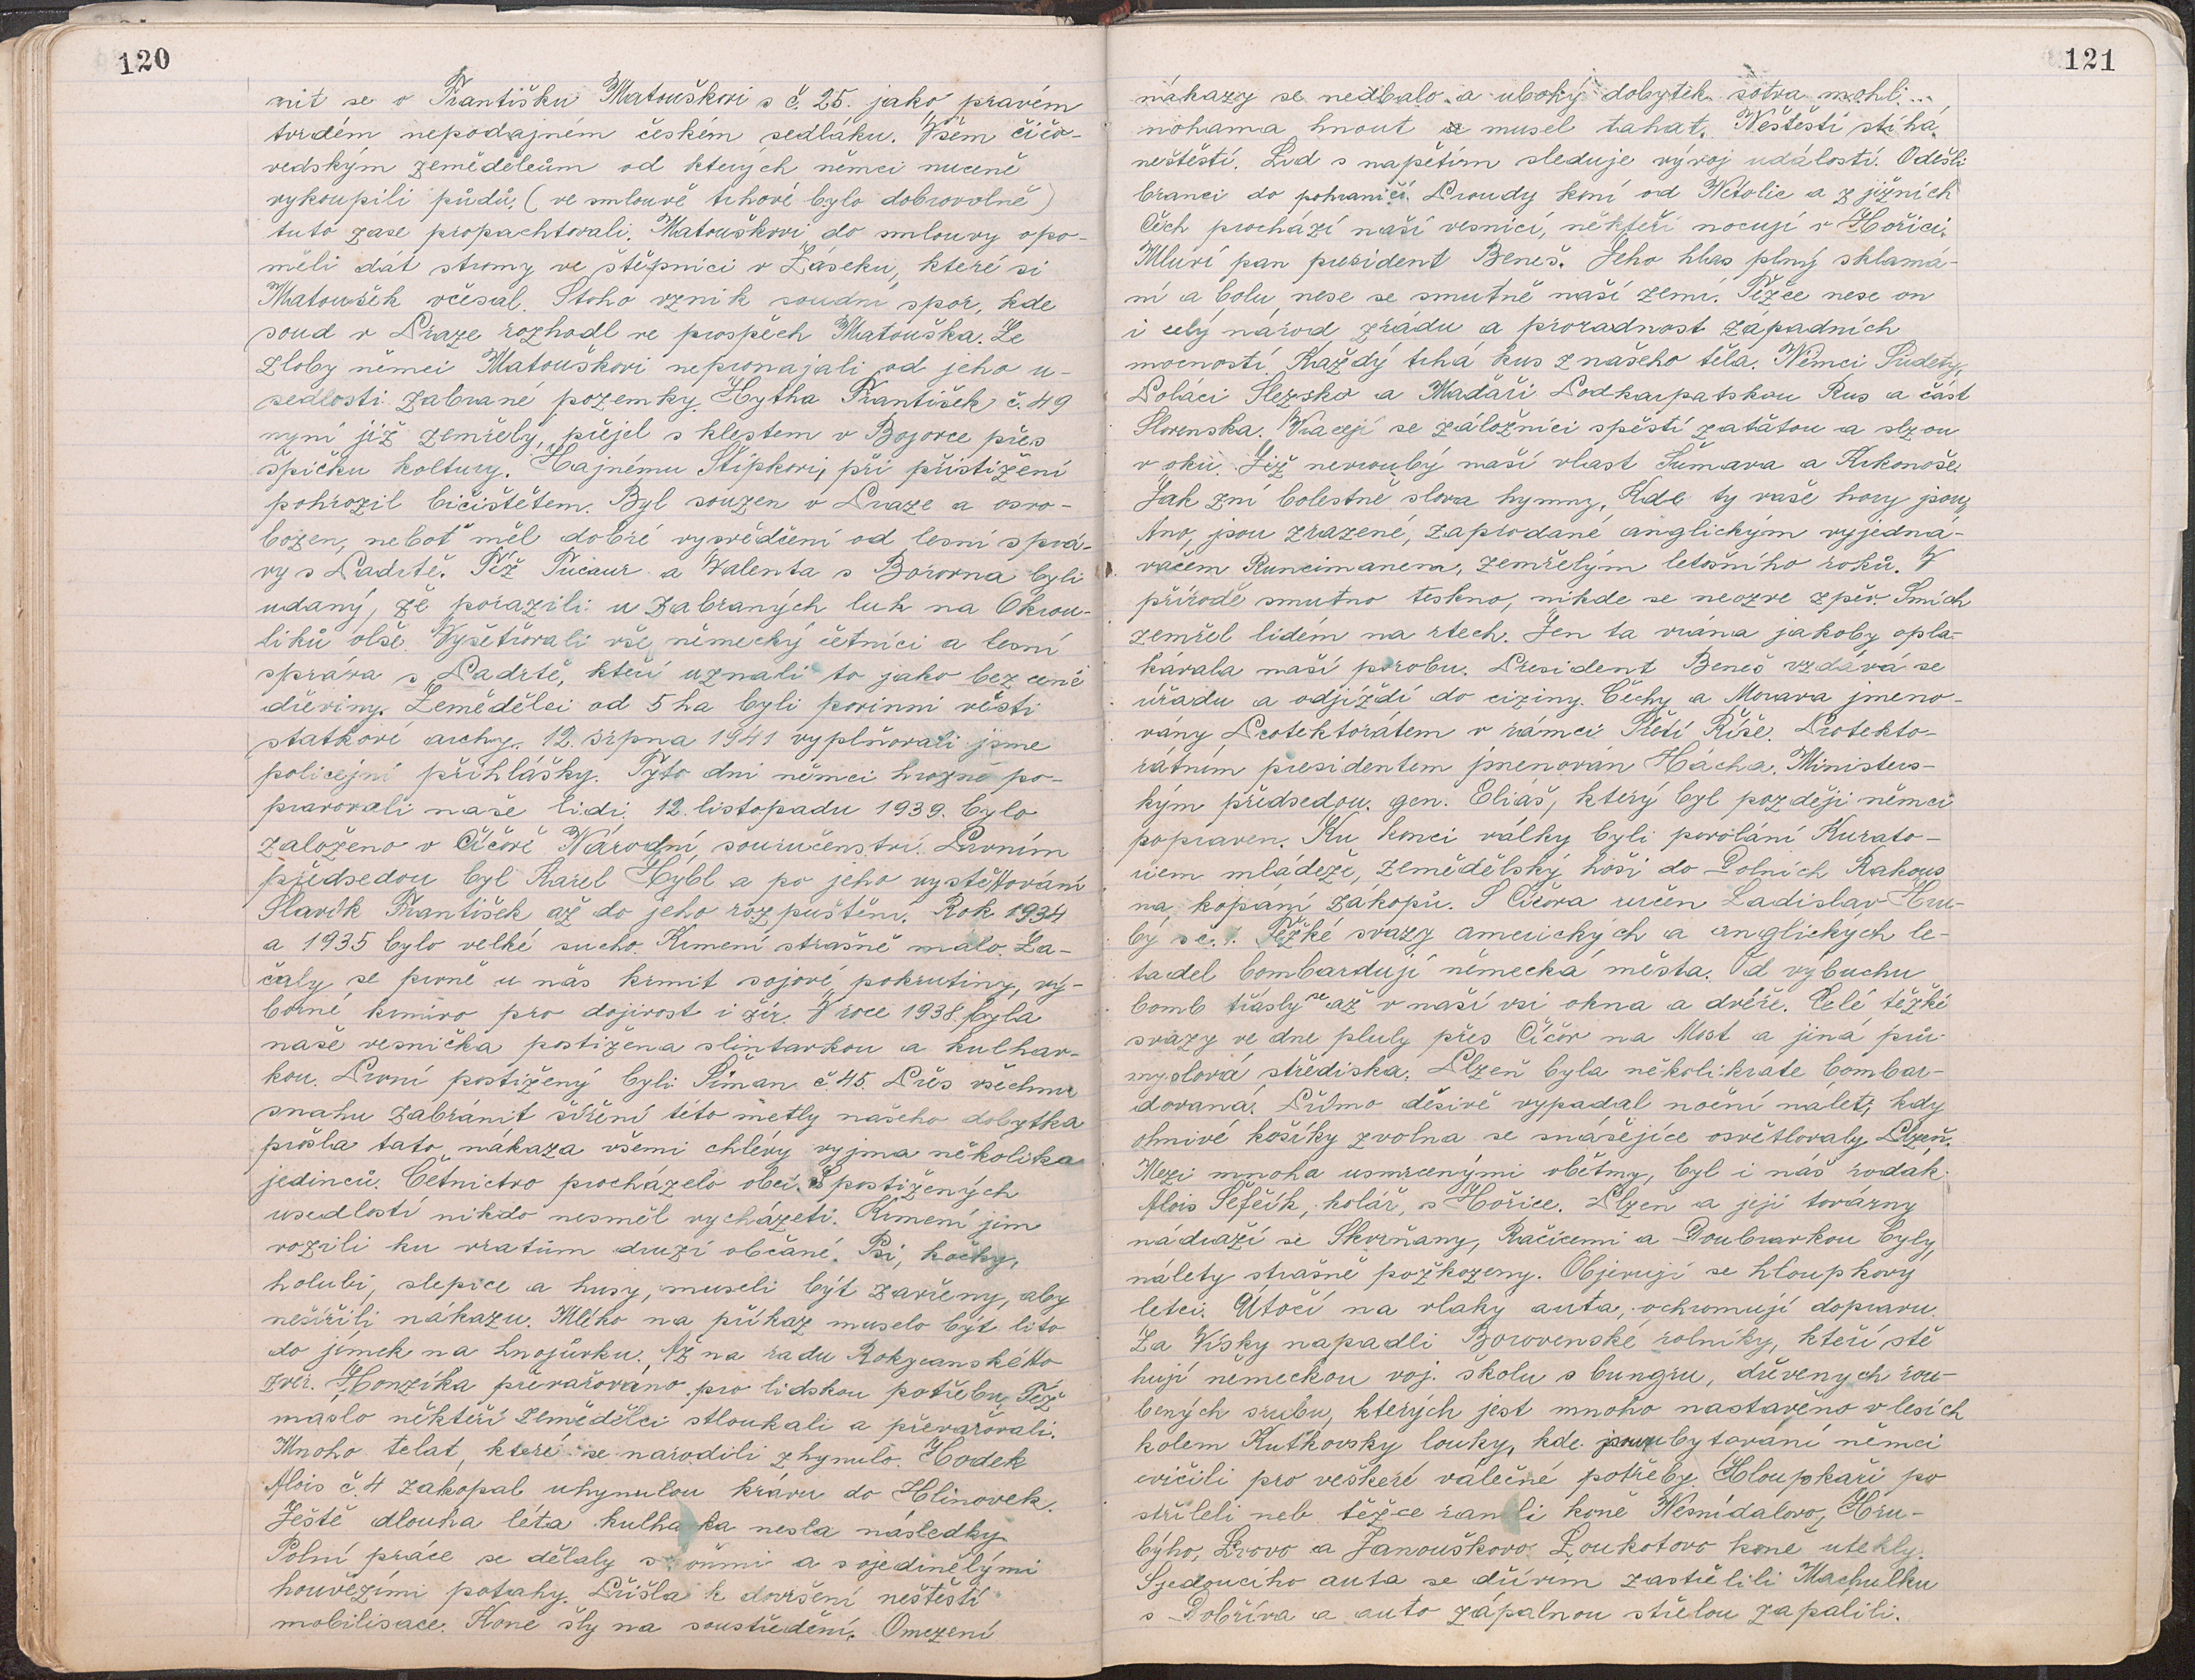 120
nit se o Františku Matouškovi s č. 25. jako pravém
tvrdém nepodajném českém sedláku. Všem číčo-
vedským zemědělcům od kterých němci nuceně
vykoupili půdů, (ve smlouvě trhové bylo dobrovolně)
tuto zase propachtovali. Matouškovi do smlouvy opo-
měli dát stromy ve štěpnici v Záseku, které si
Matoušek včesal. Stoho vznik soudní spor, kde
soud v Praze rozhodl ve prospěch Matouška. Ze
zloby němci Matouškovi nepronajali od jeho u-
sedlosti zabrané pozemky. Hytha František č. 49
nyní již zemřelý, přejel s klestem v Bojorce přes
špičku koltury. Hajnému Štípkovi, při přistižení
pohrozil bičištětem. Byl souzen v Praze a osvo-
bozen, neboť měl dobré vysvědčení od lesní sprá-
vy s Padrtě. Též Tucaur a Valenta s Borovna byli
udaný, že porazili u zabraných luk na Okrou-
liků olše. Vyšetřovali vše německý četníci a lesní
správa s Padrtě, kteří uznali to jako bezcené
dřeviny. Zemědělci od 5 ha byli povinni vésti
statkové archy. 12. srpna 1941 vyplňovali jsme
policejní přihlášky. Tyto dni němci hrozně po-
pravovali naše lidi. 12. listopadu 1939. bylo
založeno v Číčově Národní souručenství. Prvním
předsedou byl Karel Hýbl a po jeho vystěhování
Slavík František až do jeho rozpuštění. Rok 1934
a 1935 bylo velké sucho. Krmení strašně málo. Za-
čaly se prvně u nás krmit sojové pokrutiny, vý-
borné krmivo pro dojivost i žír. V roce 1938. byla
naše vesnička postižena slintavkou a kulhav-
kou. První postižený byli Šiman č. 45. Přes všechnu
snahu zabránit šíření této metly našeho dobytka
prošla tato nákaza všemi chlévy vyjma několika
jedinců. Četnictvo procházelo obcí. S postižených
usedlostí nikdo nesměl vycházeti. Krmení jim
vozili ku vratům druzí občané. Psi, kočky,
holubi, slepice a husy, museli být zavřeny, aby
nešířili nákazu. Mléko na příkaz muselo být lito
do jímek na hnojůvku. Až na radu Rokycanského
zvěr. Honzíka převařováno pro lidskou potřebu. Též
maslo někteří zemědělci stloukali a převařovali.
Mnoho telat, které se narodili zhynulo. Hodek
Alois č. 4 zakopal uhynulou krávu do Hlinovek.
Ještě dlouha léta kulhavka nesla následky
Polní práce se dělaly s koňmi a s ojedinělými
hovězími potahy. Přišla k dovršení neštěstí
mobilisace. Koně šly na soustředění. Omezení
121
nákazy se nedbalo a ubohý dobytek sotva mohl
nohama hnout a musel tahat. Neštěstí stíhá
neštěstí. Lid s napětím sleduje vývoj událostí. Odešli
branci do pohraničí. Proudy koní od Netolic a z jižních
Čech prochází naší vesnicí, někteří nocují v Hořici.
Mluví pan president Beneš. Jeho hlas plný sklamá-
ní a bolu, nese se smutně naší zemí. Těžce nese on
i celý národ zrádu a proradnost západních
mocností. Každý trhá kus z našeho těla. Němci Sudety,
Poláci Slezsko a Madaři Podkarpatskou Rus a část
Slovenska. Vracejí se záložníci spěstí zatátou a slzou
v oku. Již nevroubý naší vlast Šumava a Krkonoše.
Jak zní bolestně slova hymny, Kde ty vaše hory jsou,
Ano, jsou zrazené, zaprodané anglickým vyjedná-
vačem Runcimanem, zemřelým letošního roků. V
přírodě smutno teskno, nikde se neozve zpěv. Smích
zemřel lidém na rtech. Jen ta vrána jakoby opla-
kávala naší porobu. President Beneš vzdává se
úřadu a odjíždí do ciziny. Čechy a Morava jmeno-
vány Protektorátem v rámci Třetí Říše. Protekto-
rátním presidentem jmenován Hácha. Ministers-
kým předsedou. gen. Eliáš, který byl později němci
popraven. Ku konci války byli povoláni Kurato-
riem mládeže, zemědělský hoši do Dolních Rakous
na kopání zákopů. S Číčova určen Ladislav Hru-
bý sc. 1. Těžké svazy amerických a anglických le-
tadel bombardují německá města. Od vybuchu
bomb třásly se až v naší vsi okna a dvéře. Celé těžké
svazy ve dne pluly přes Číčov na Most a jiná prů-
myslová střediska. Plzeň byla několikráte bombar-
dovaná. Přímo děsivě vypadal noční nálet, kdy
ohnivé košíky zvolna se snášejíce osvětlovaly Plzeň.
Mezi mnoha usmrcenými obětmy, byl i náš rodák
Alois Šefčík, kolář, s Hořice. Plzen a její továrny
nádraží se Skvrňany, Račicemi a Doubravkou byly
nálety strašně požkozeny. Objevují se hloupkový
letci. Útočí na vlaky auta, ochromují dopravu.
Za Vísky napadli Borovenské rolníky, kteří stě
hují německou voj. školu s bungru, dřevenych rou-
bených srubu, kterých jest mnoho nastavěno v lesích
kolem Kuťkovsky louky, kde ubytovaní němci
cvičili pro veškeré válečné potřeby. Hloupkaři po
stříleli neb těžce ranili koně Nesnídalovo, Hru-
býho, Lrovo a Janouškovo. Loukotovo koně utekly.
Sjedoucího auta se dřívím zastřelili Machulku
s Dobříva a auto zápalnou střelou zapálili.